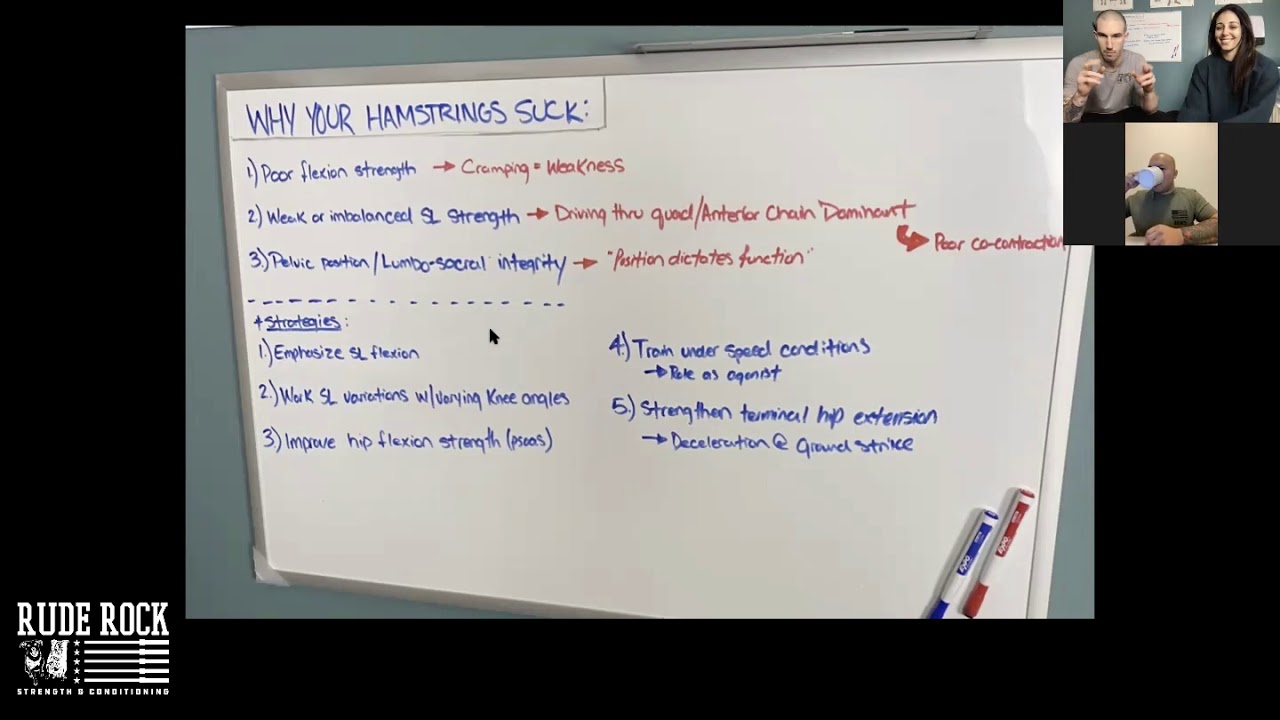 WHY YOUR HAMSTRINGS SUCK:
1) Poor flexion strength → Cramping = Weakness
2.) Weak or imbalanced SL strength → Driving thru quad/Anterior Chain Dominant
Poor co-contraction
3.) Pelvic position/Lumbo-sacral integrity → "Position dictates function"
* Strategies:
1.) Emphasize SL flexion
2.) Work SL variations w/varying Knee angles
3.) Improve hip flexion strength (psoas)
4.) Train under speed conditions
→ Role as agonist
5.) Strengthen terminal hip extension
→ Deceleration @ ground strike
EXPO
EXPO
RUDE ROCK
STRENGTH & CONDITIONING